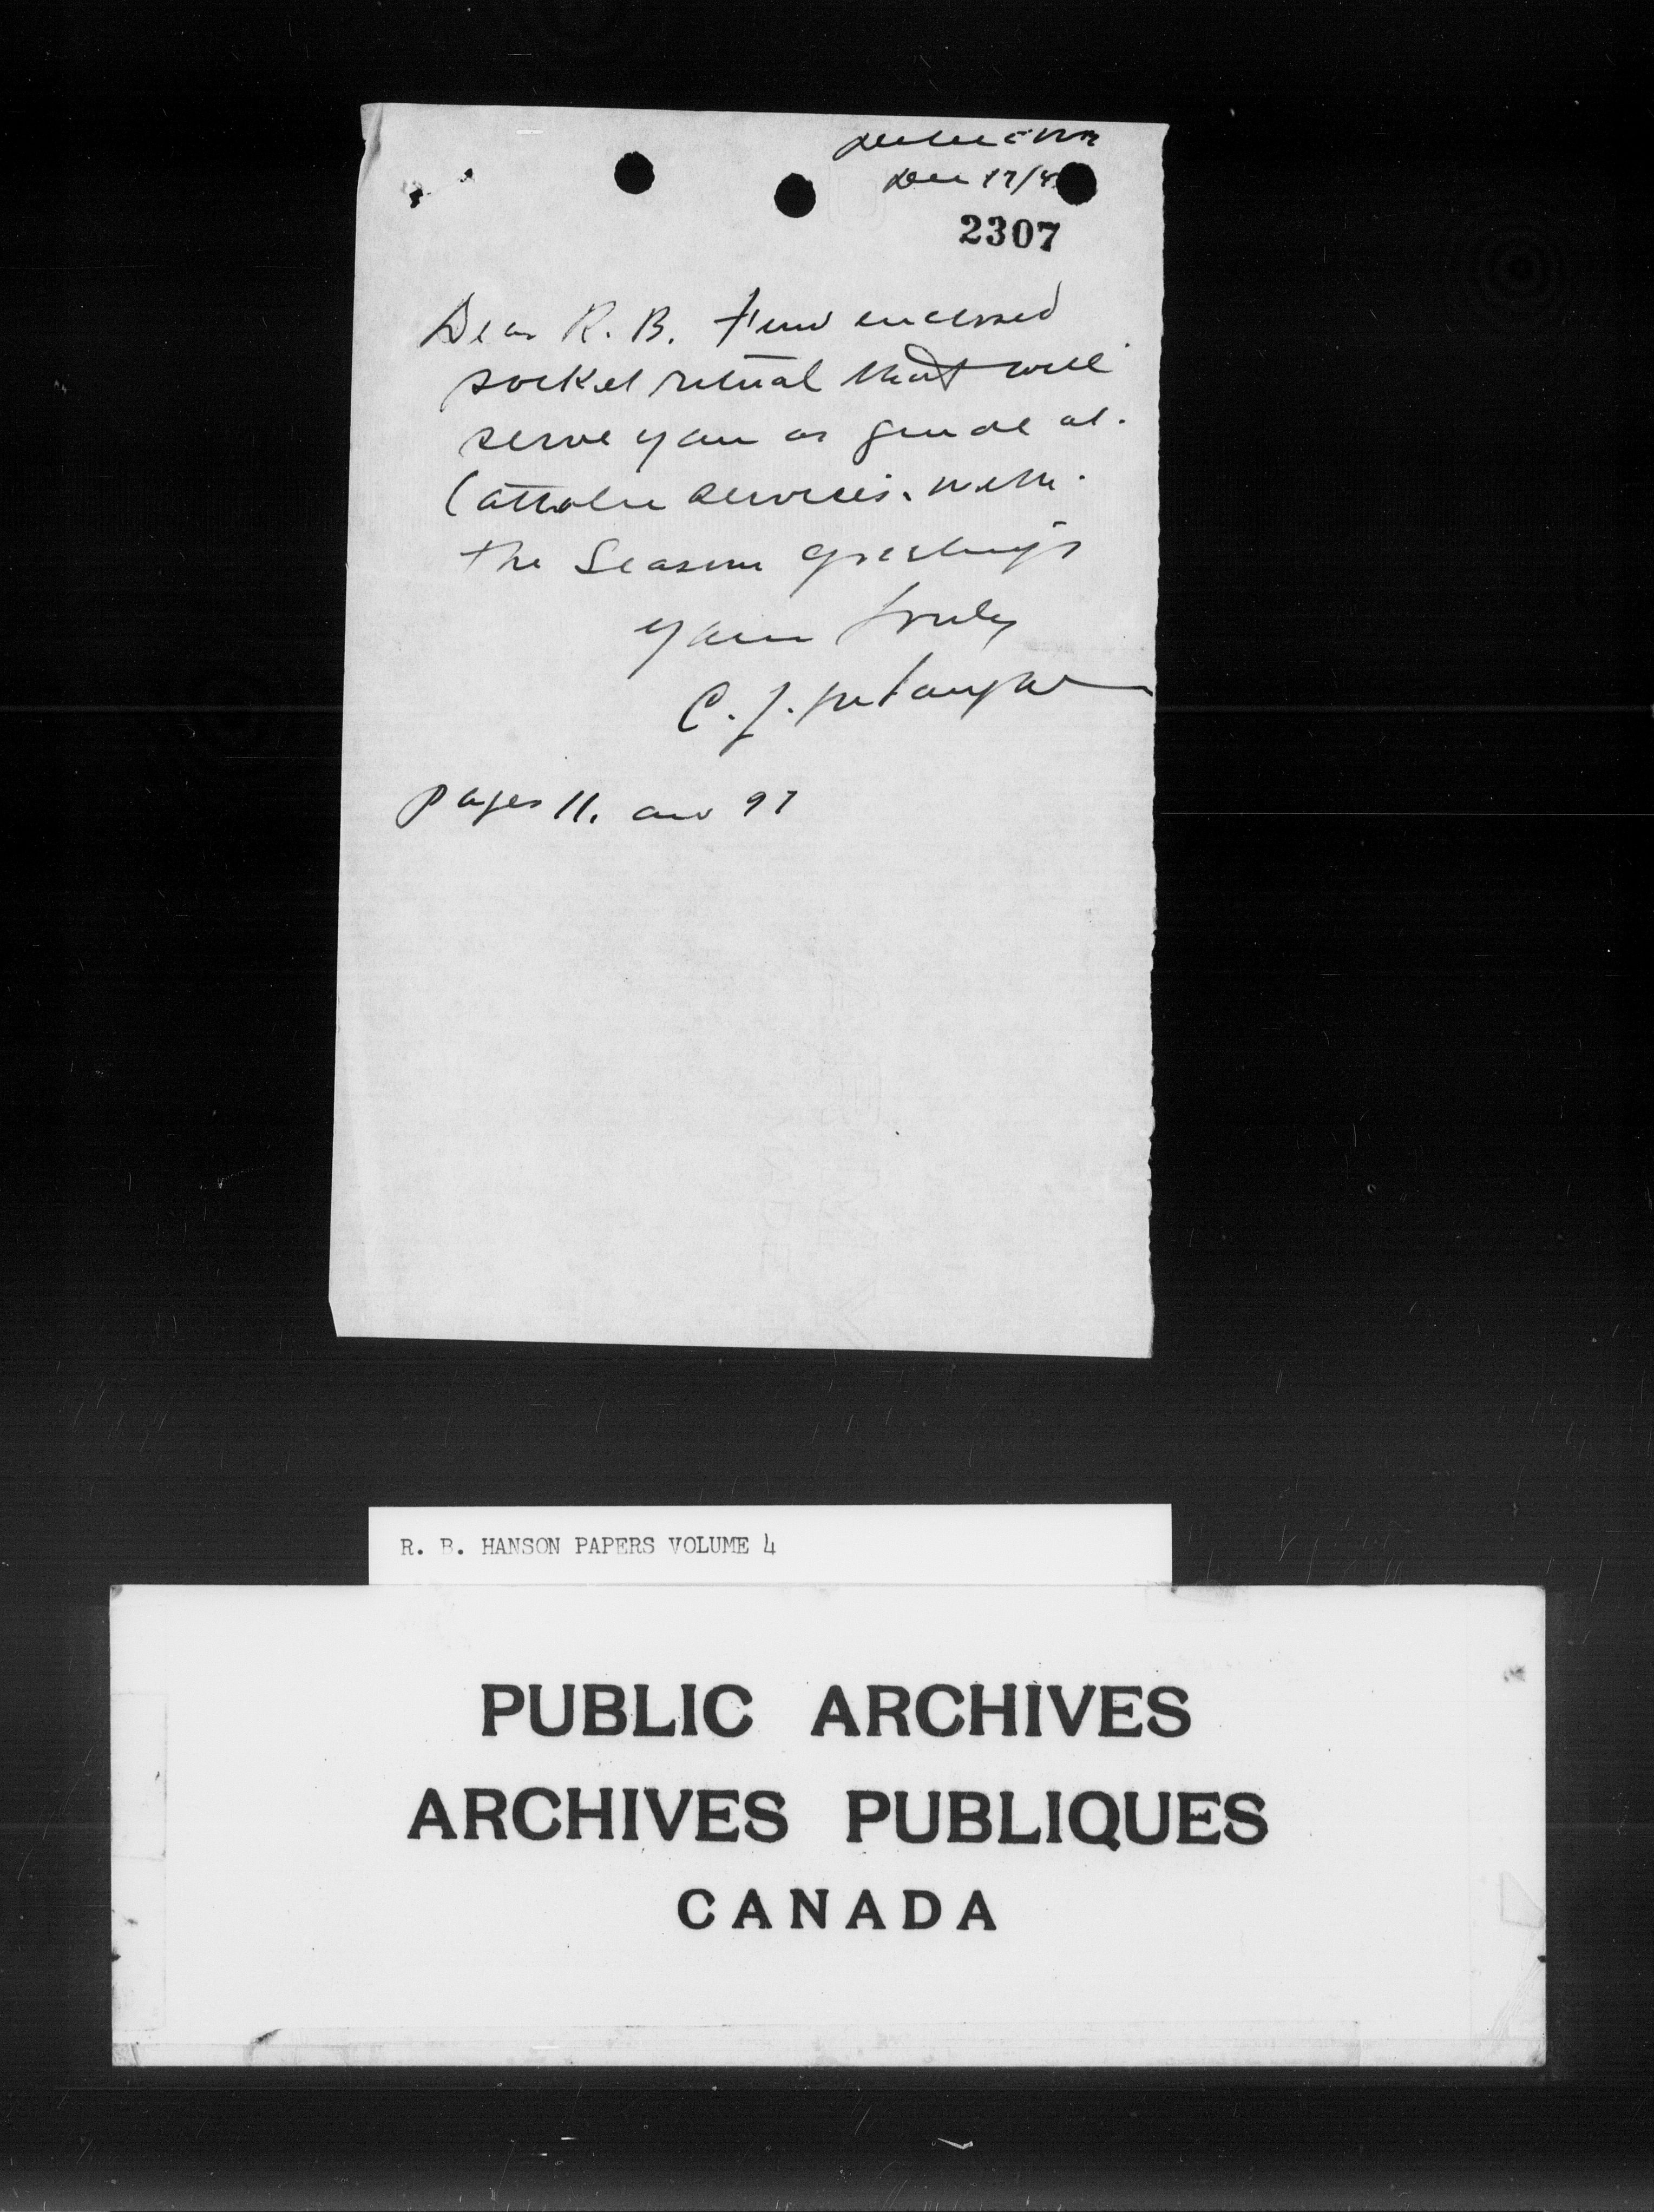 Dec 17/4
2307
Dear R. B. Find enclosed
pocket ritual that will
serve you as guide at
Catholic services. With
the Season greetings
Yours truly
C. J.
pages 11. and 97
R. B. HANSON PAPERS VOLUME 4
PUBLIC ARCHIVES
ARCHIVES PUBLIQUES
CANADA